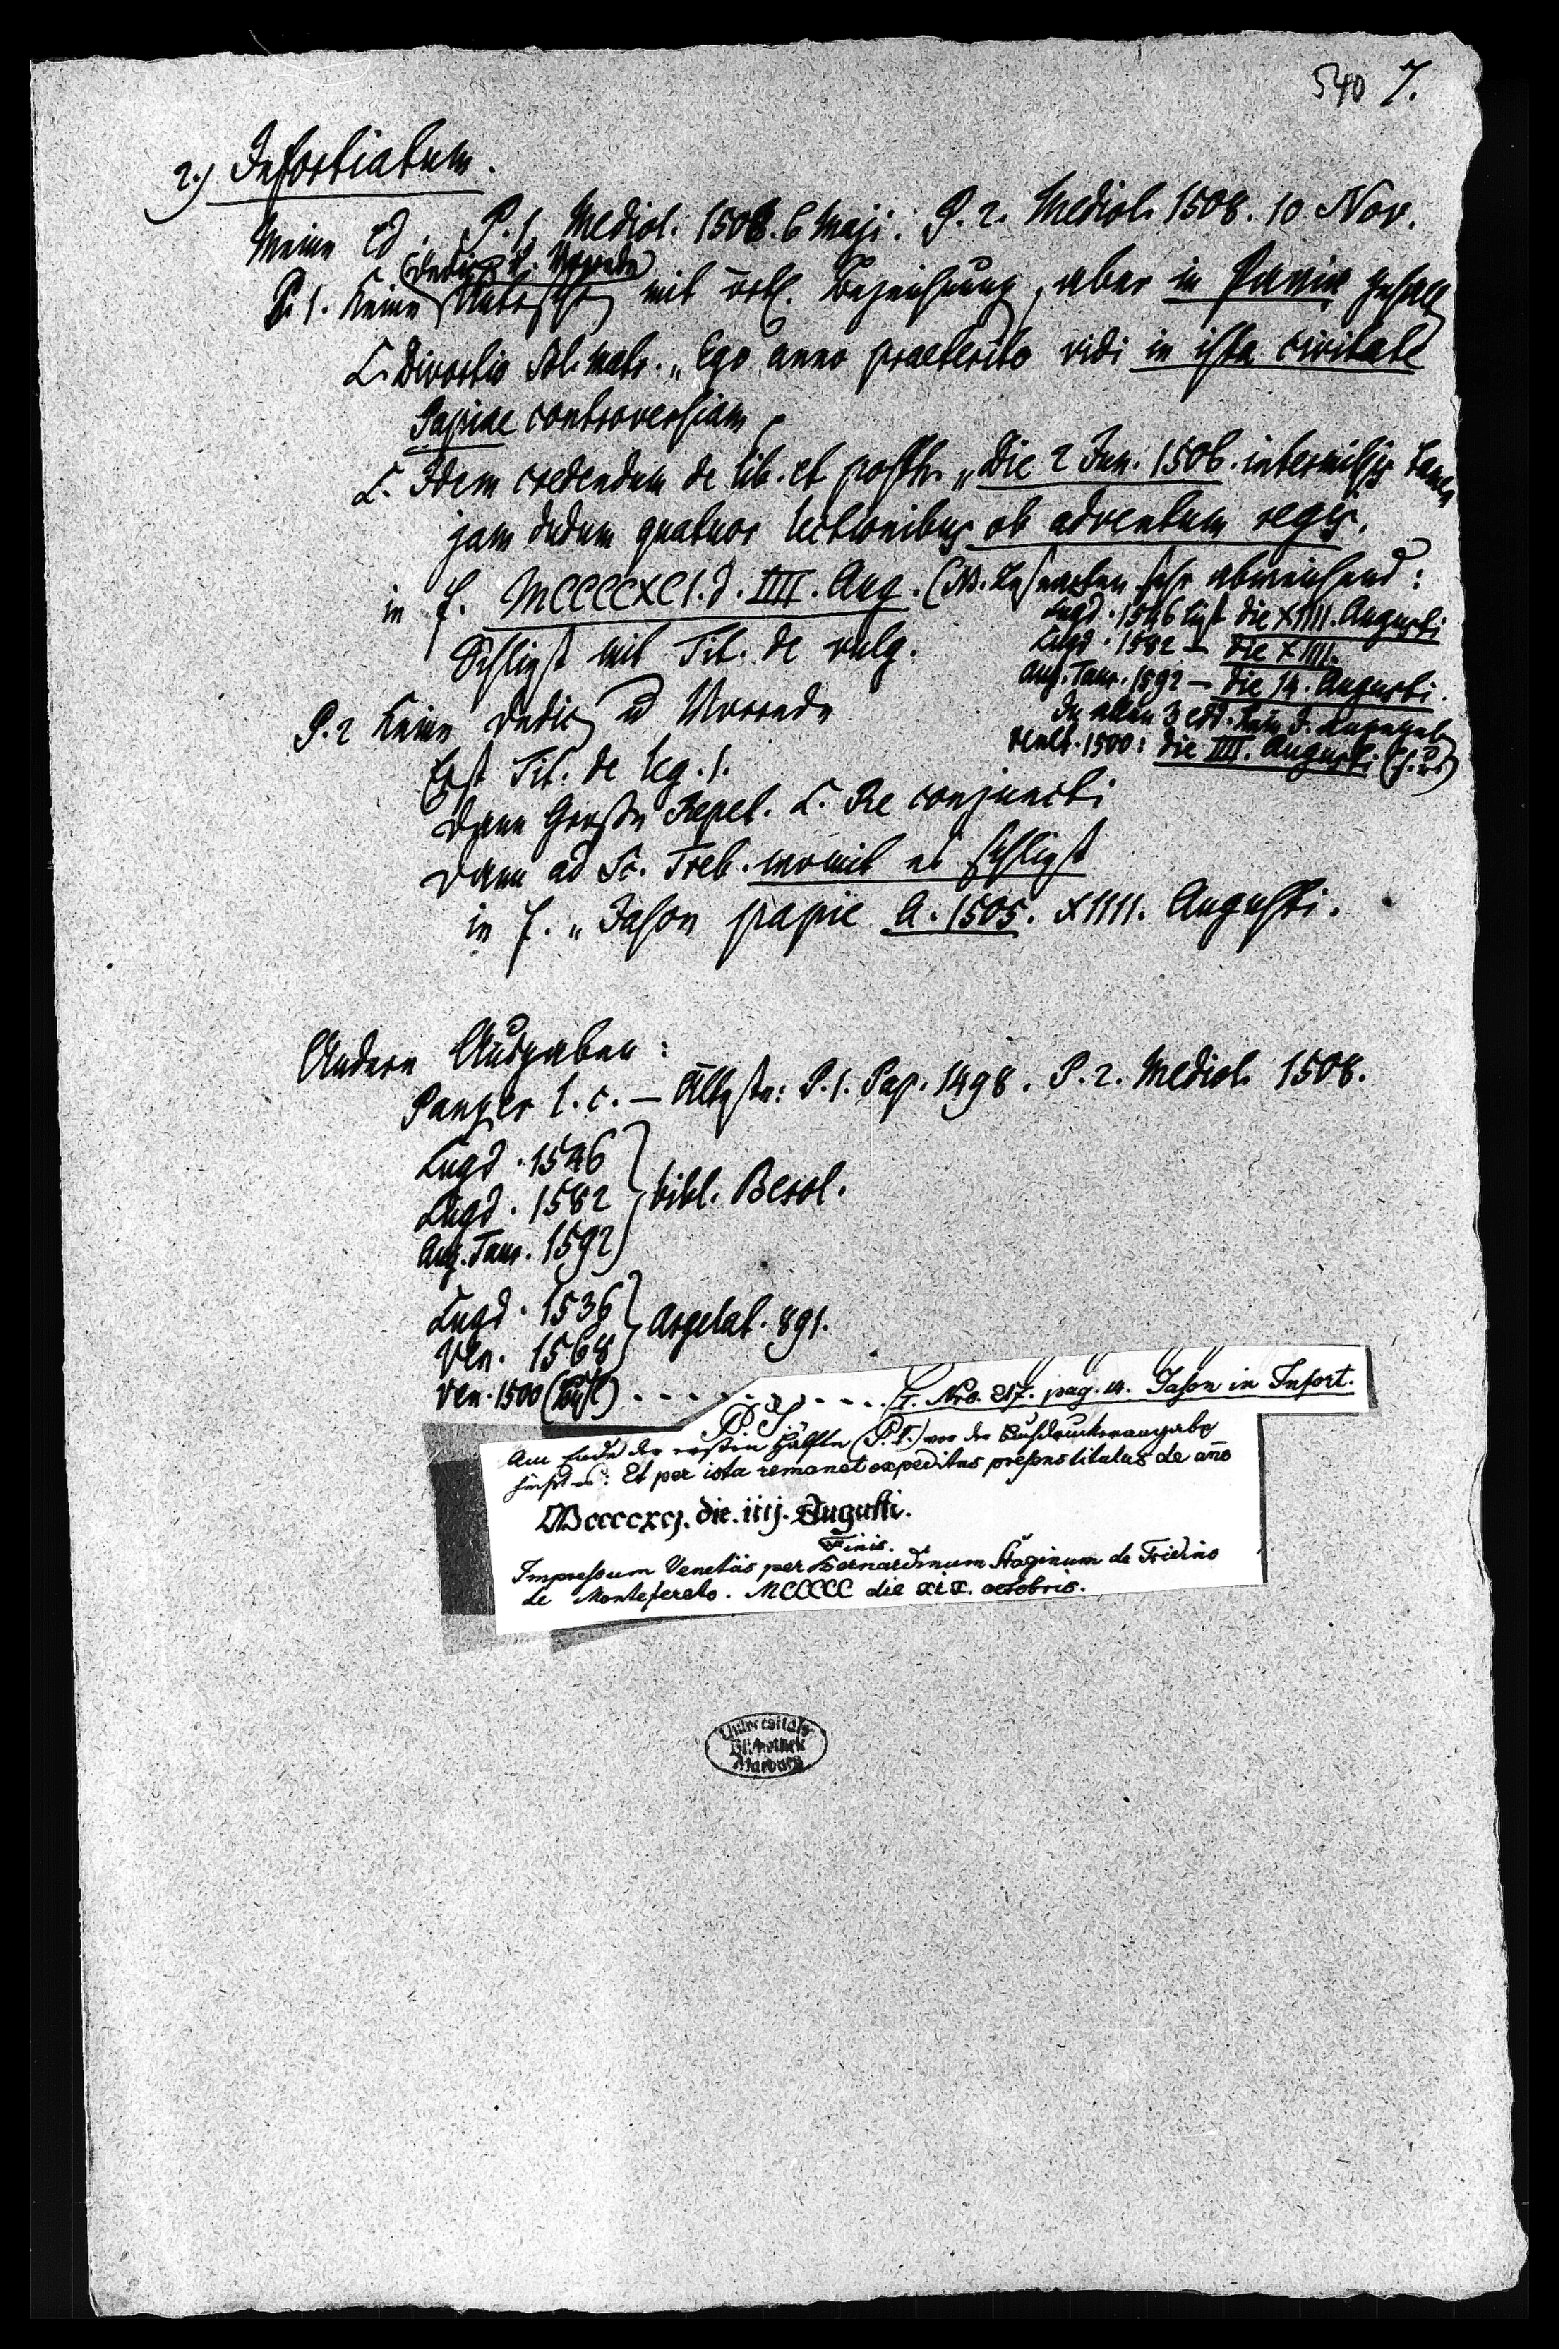 540 7.
2.) Infortiatum.
Meine Ed. P. 1. Mediol. 1508. 6 Maji. P. 2. Mediol. 1508. 10 Nov.
(Dedic. u. Vorrede)
P. 1. Keine mit örtl. Bezeichnung, aber in Pavia
L. Divortio Sol. Matr. „Ego anno praeterito vidi in ista civitate
Papiae controversiam
L. Idem credendum de lib. et posth. „Die 2 Jun. 1506. intermissis tamen
jam dudum quatuor lectionibus ob adventum regis.
in f. MCCCCXCI. d. IIII. Aug. (NB. Lesarten sehr abweichend:
Lugd. 1546 liest die XIIII. Augusti
Lugd. 1582 — die XIIII.
Aug. Taur. 1592 — die 14. Augusti.
In allen 3 edd. kein
Venet. 1500: die IIII. Augusti (s. u.)
Schließt mit Tit. de vulg.
P. 2 Keine Dedic. u Vorrede
Erst Tit. de leg. 1.
Dann Große Repet. L. Re conjuncti
Dann ad Sc. Treb. womit es schließt
in f. „Jason papie A. 1505. XIIII. Augusti.
Andere Ausgaben:
Panzer l. c. — Älteste: P. 1. Pap. 1498. P. 2. Mediol. 1508.
Lugd. 1546
Lugd. 1582
Aug. Taur. 1592
bibl. Besol.
Lugd. 1536
Ven. 1568
Argelat. 891.
Ven. 1500
I. Nro. 217. pag. 14. Jason in Infort.
Am Ende der ersten Hälfte (P. 1.) vor der Buchdruckerangabe
steht: Et per ista remanet expeditus presens titulus de año
Mccccxcj. die. iiij. Augusti.
Finis.
Impressum Venetiis per Bernardinum Staginum de Tridino
de Monteferato. MCCCCC die xix. octobris.
Universitäts
Bibliothek
Marburg